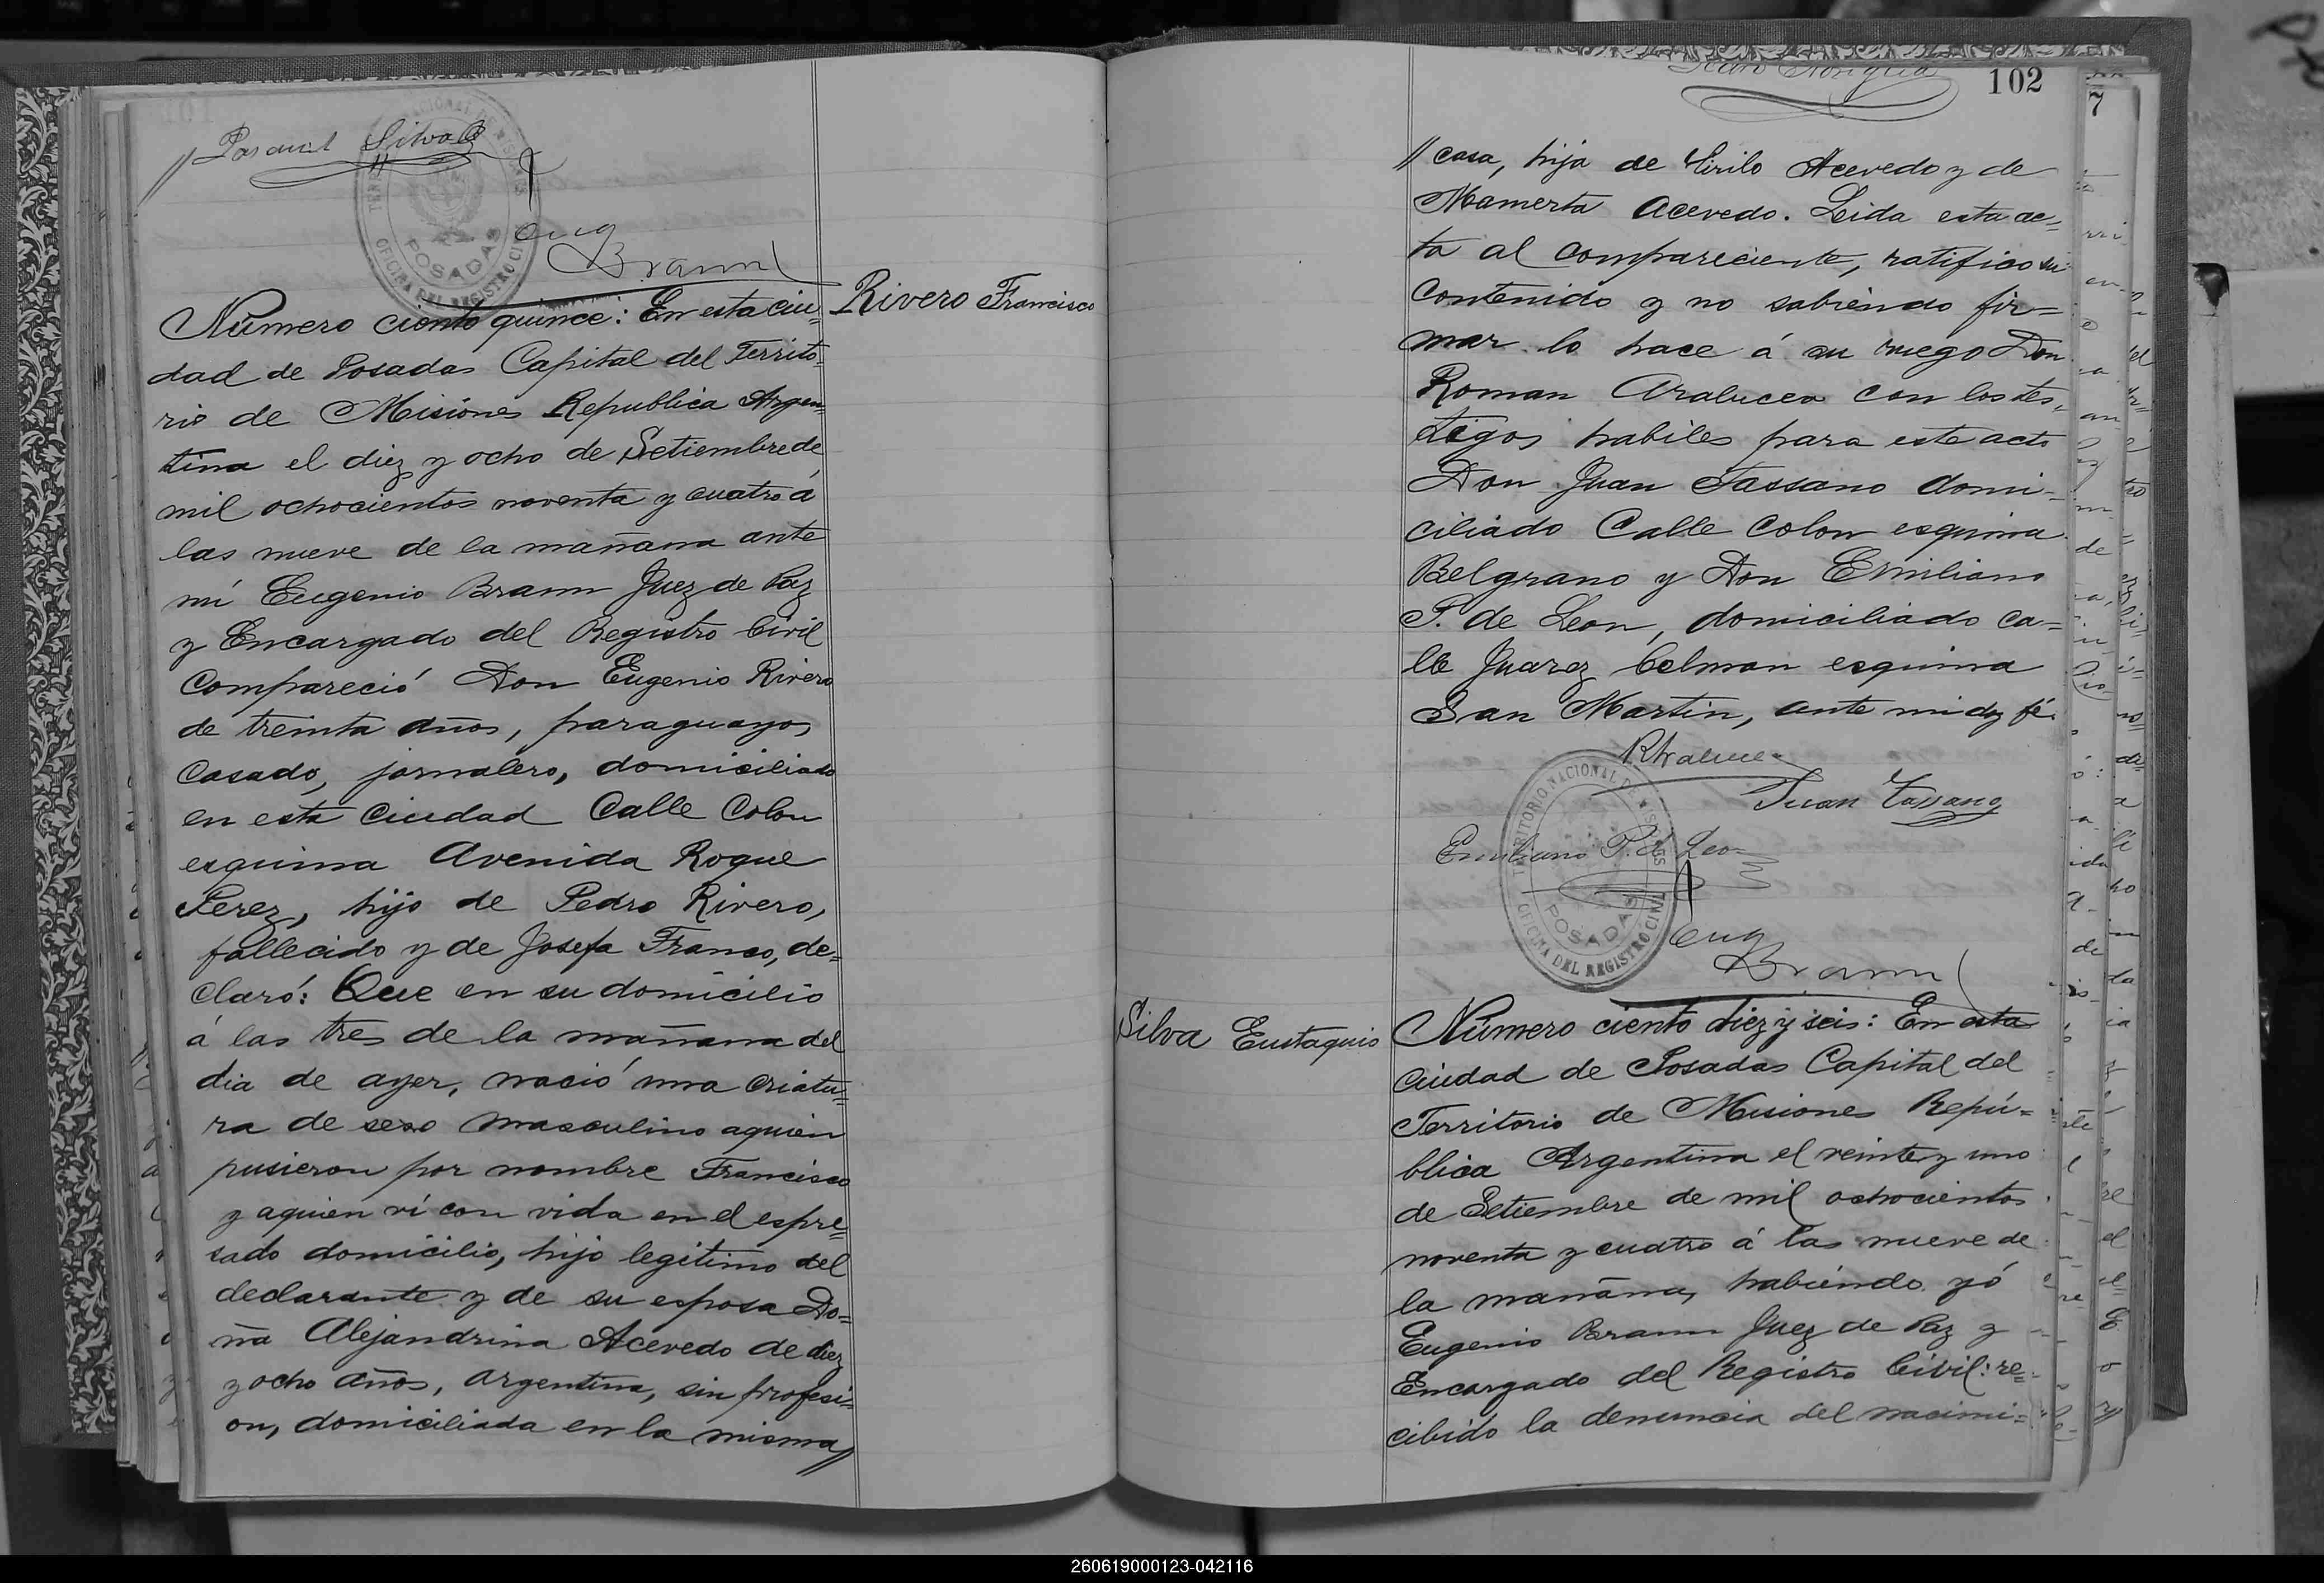 // Pascual Silva
TERRITORIO NACIONAL DE MISIONES
POSADAS
OFICINA DEL REGISTRO CIVIL
Eug
Bramm
Rivero Francisco
Número ciento quince: En esta ciu=
dad de Posadas Capital del Territo=
rio de Misiones Republica Argen=
tina el diez y ocho de Setiembre de
mil ochocientos noventa y cuatro á
las nueve de la mañana ante
mí Eugenio Bramm Juez de Paz
y Encargado del Registro Civil
Compareció Don Eugenio Rivero
de treinta años, paraguayo,
Casado, jornalero, domiciliado
en esta Ciudad Calle Colon
esquina Avenida Roque
Perez, hijo de Pedro Rivero,
fallecido y de Josefa Franco, de=
claró: Que en su domicilio
á las tres de la mañana del
dia de ayer, nació una criatu=
ra de sexo masculino aquien
pusieron por nombre Francisco
y aquien ví con vida en el espre=
sado domicilio, hijo legitimo del
declarante y de su esposa Do=
ña Alejandrina Acevedo de diez
y ocho años, argentina, sin profesi=
on, domiciliada en la misma//
102
7
// casa, hija de Cirilo Acevedo y de
Mamerta Acevedo. Leida esta ac=
ta al compareciente, ratifico su
contenido y no sabiendo fir=
mar lo hace á su ruego Don
Roman Aralucea con los tes=
tigos habiles para este acto
Don Juan Tassano domi=
ciliado Calle Colon esquina
Belgrano y Don Emiliano
P. de Leon, domiciliado ca=
lle Juarez Celman esquina
San Martin, ante mi doy fé.
Juan Tassano
Emiliano P. de Leon
TERRITORIO NACIONAL DE MISIONES
POSADAS
OFICINA DEL REGISTRO CIVIL
Eug
Bramm
Silva Eustaquio
Número ciento diez y seis: En esta
Ciudad de Posadas Capital del
Territorio de Misiones Repú=
blica Argentina el veinte y uno
de Setiembre de mil ochocientos
noventa y cuatro á las nueve de
la mañana, habiendo yó
Eugenio Bramm Juez de Paz y
Encargado del Registro Civil: re=
cibido la denuncia del nacimi=
260619000123-042116